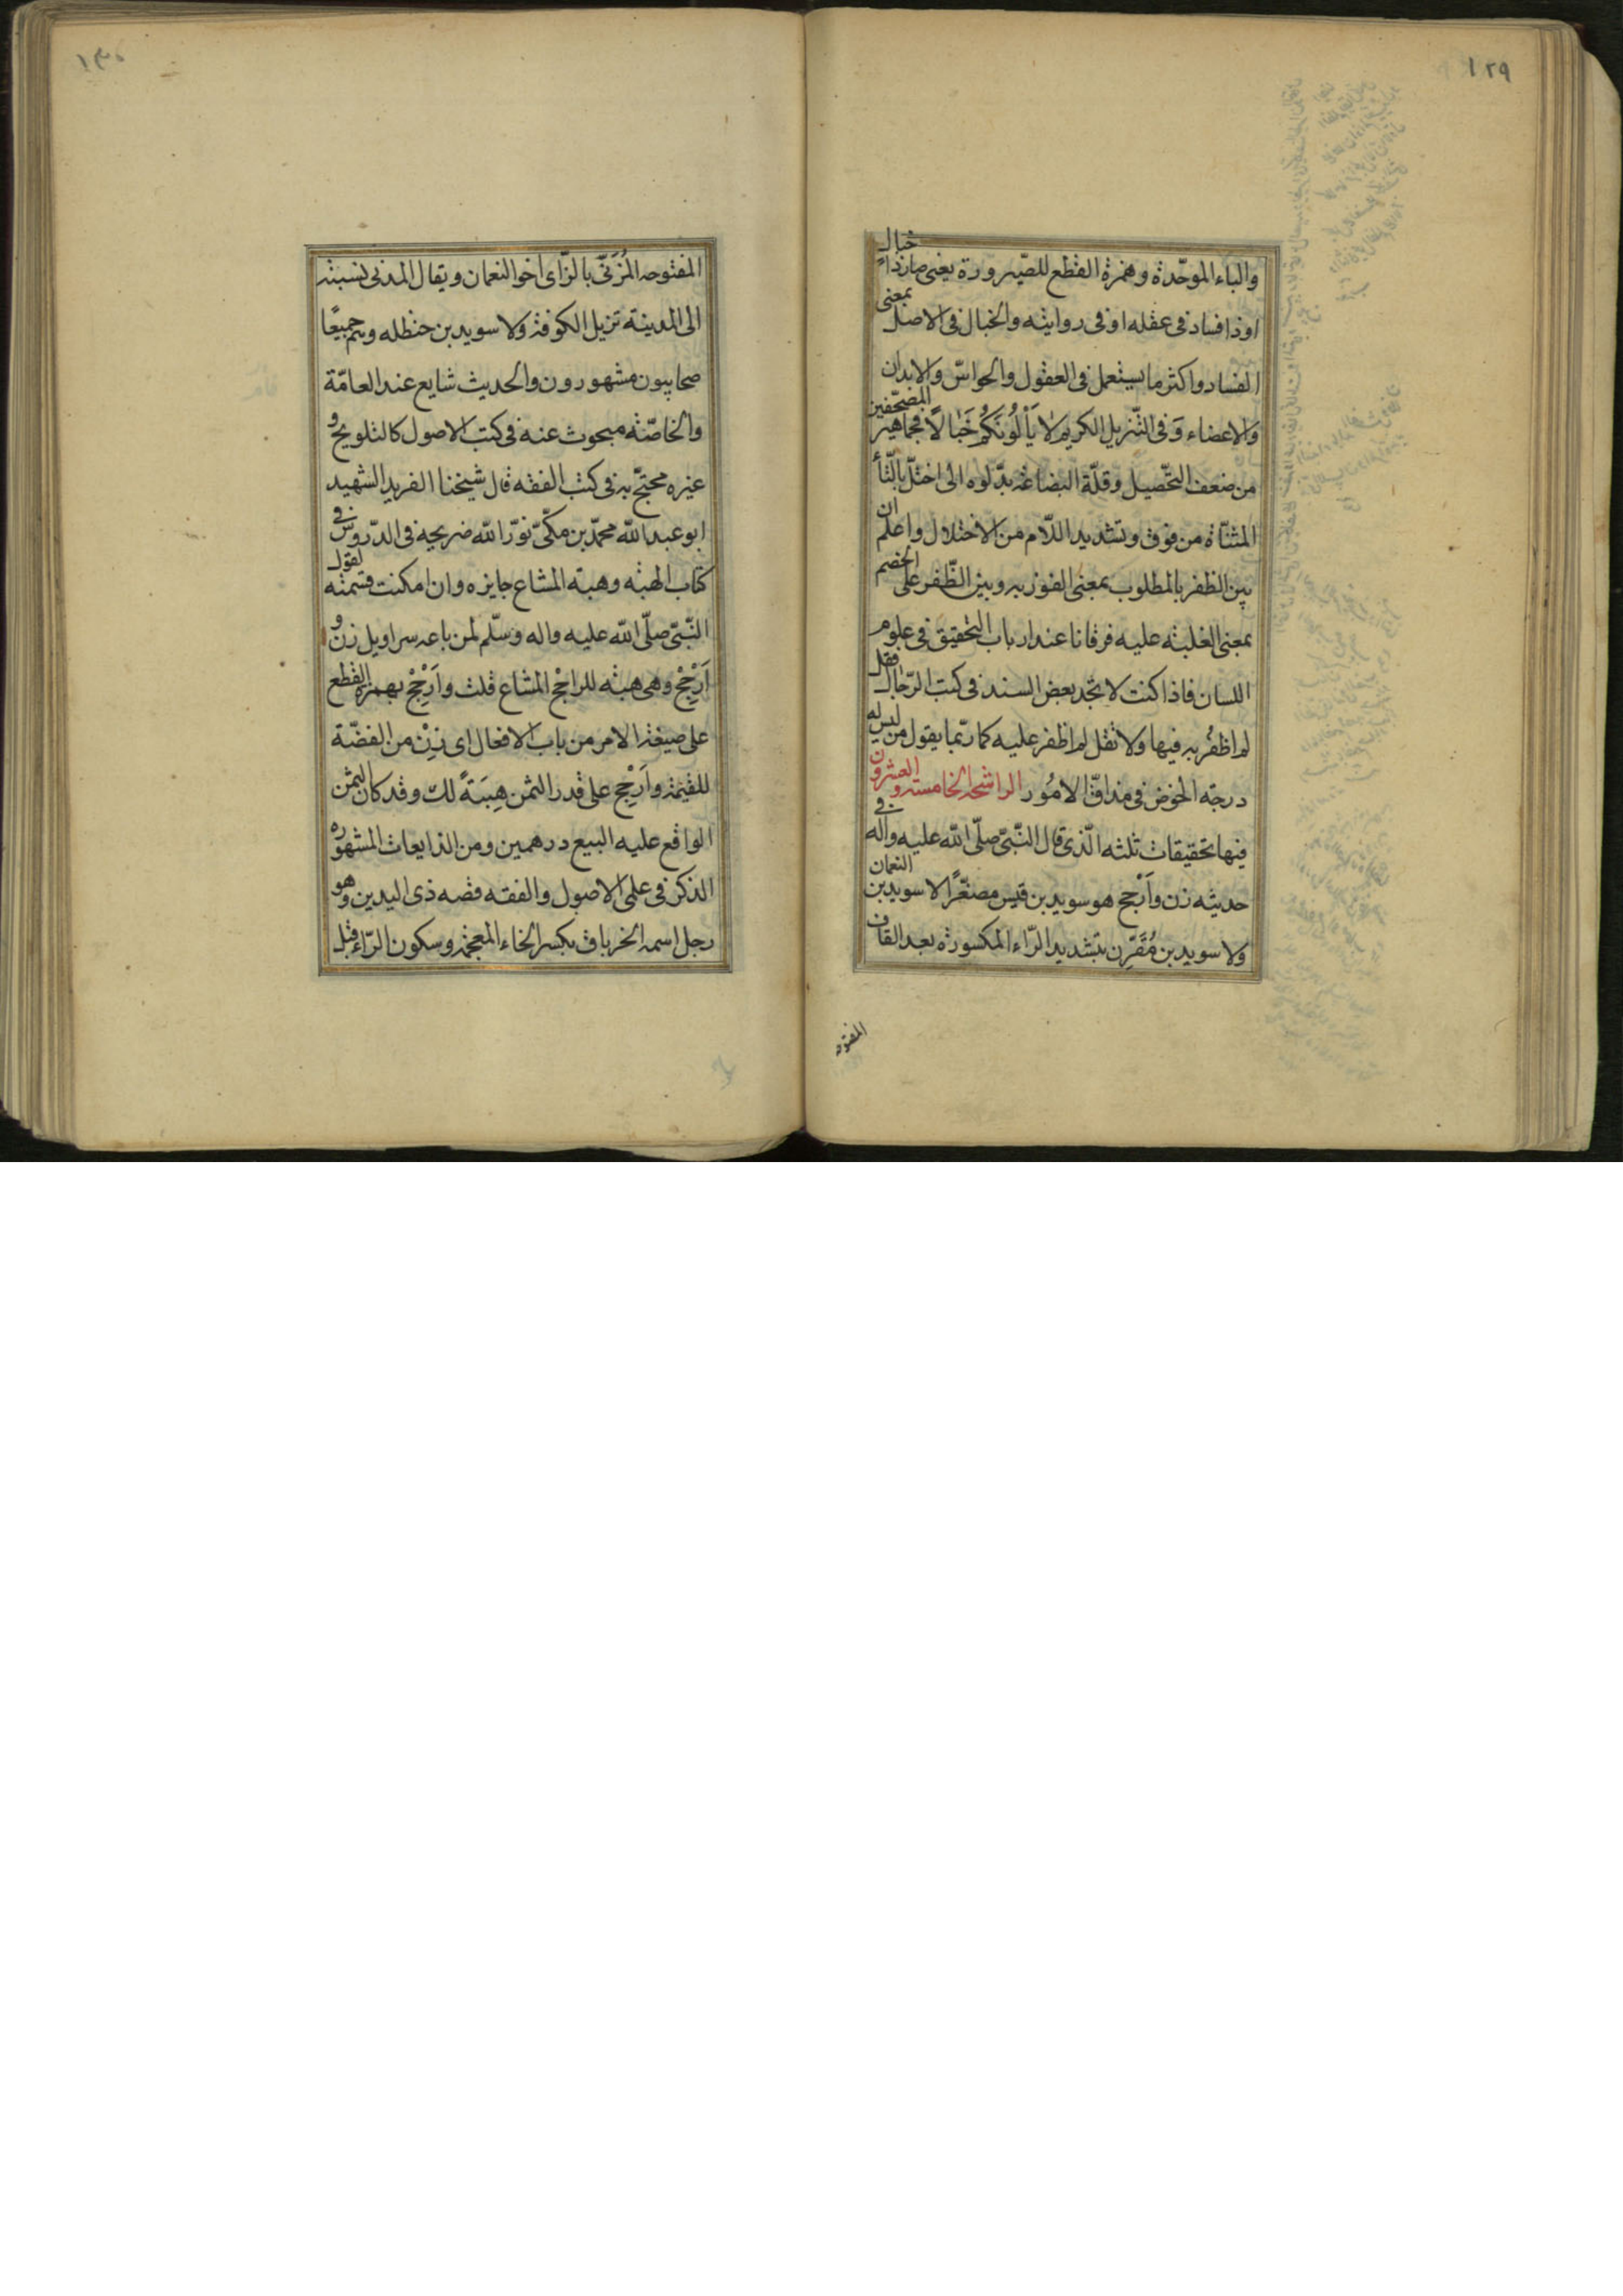 ١٢٩
والباء الموحّدة وهمزة القطع للصّيرورة يعنى صار ذا خبال
او ذا فساد فى عقله او فى روايته والخبال فى الاصل بمعنى
الفساد واكثر ما يستعمل فى العقول والحواسّ والابدان
والاعضاء وَفى التّنزيل الكريم لا يَأْلُونَكُمْ خَبٰالًا فجماهير المصحّفين
من ضعف التّحصيل وقلّة البضاعة بدّلوه الى اختلّ بالتّاء
المثنّاة من فوق وتشديد اللّام من الاختلال واعلم ان
بين الظفر بالمطلوب بمعنى الفوز به وبين الظّفر على الخصم
بمعنى الغلبة عليه فرقانا عند ارباب التحقيق فى علوم
اللسان فاذا كنت لا تجد بعض السند فى كتب الرّجال فقل
لم اظفرْ به فيها ولا تقل لم اظفر عليه كما ربّما يقول من ليس له
درجة الخوض فى مداقّ الامُور الراشحة الخامسة والعشرون
فيها تحقيقات ثلثه الّذى قال النّبىّ صلّى اللّه عليه واله فى
حديثه زن وأَرْجح هو سويد بن قيس مصغّرًا لا سويد بن النعمان
ولا سويد بن مُقَرِّن بتشديد الرّاء المكسورة بعد القاف
المفتوحه
١٣٠
المفتوحه المُزَنىّ بالزّاى اخو النعمان ويقال المدنى نسبته
الى المدينة نزيل الكوفة ولا سويد بن حنظله وهم جميعًا
صحابيون مشهورون والحديث شايع عند العامّة
والخاصّة مبحوث عنه فى كتب الاصول كالتلويح و
غيره محتجّ به فى كتب الفقه قال شيخنا الفريد الشهيد
ابو عبد اللّه محمّد بن مكّىّ نوّر اللّه ضريحه فى الدّروس فى
كتاب الهبة وهبة المشاع جايزه وان امكنت قسمته لقول
النّبىّ صلّى اللّه عليه واله وسلّم لمن باعه سراويل زن و
أَرْجِحْ وهى هبة للراجح المشاع قلت وأَرْجِحْ بهمزة القطع
على صيغة الامر من باب الافعال اى زِنْ من الفضّة
للقيمة وأَرْجِحْ على قدر الثمن هِبَةً لك وقد كان الثمن
الواقع عليه البيع درهمين ومن الذايعات المشهوره
الذكر فى علمى الاصول والفقه قصه ذى اليدين وهو
رجل اسمه الخرباق بكسر الخاء المعجمة وسكون الرّاء قبل